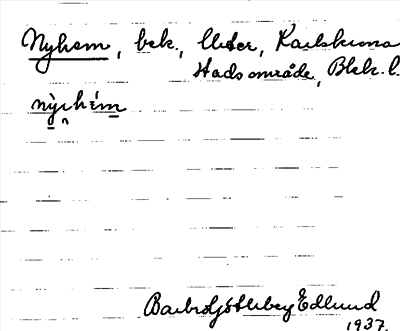 Nyhem, bek., Uttor, Karlskrona
stads område, Blek. l.
nỳhém
Barbro Götlberg Edlund
1937.